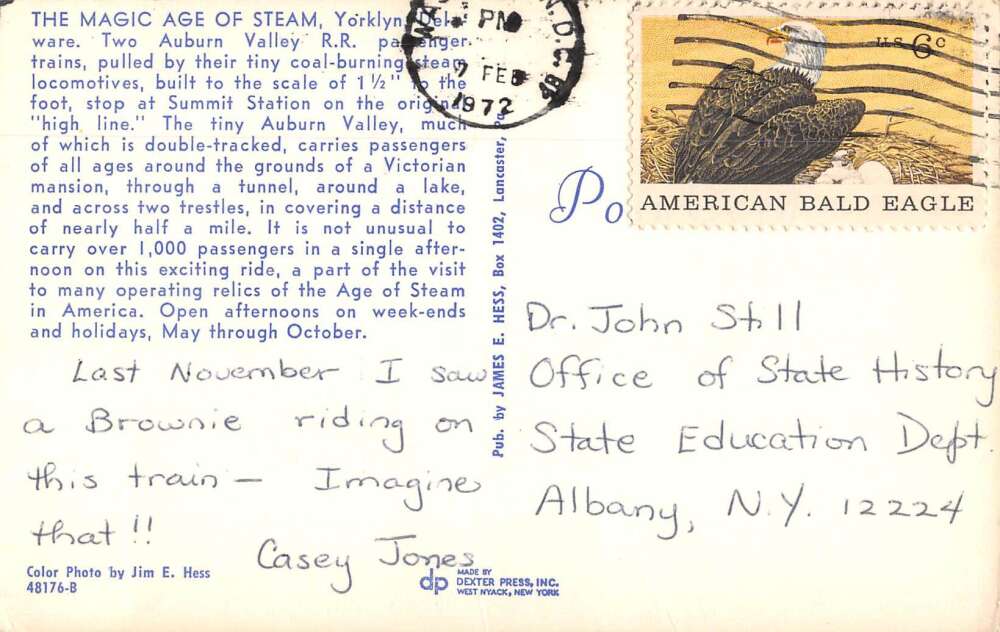 THE MAGIC AGE OF STEAM, Yorklyn, Dela-
ware. Two Auburn Valley R.R. passenger
trains, pulled by their tiny coal-burning steam
locomotives, built to the scale of 1 ½" to the
foot, stop at Summit Station on the original
"high line." The tiny Auburn Valley, much
of which is double-tracked, carries passengers
of all ages around the grounds of a Victorian
mansion, through a tunnel, around a lake,
and across two trestles, in covering a distance
of nearly half a mile. It is not unusual to
carry over 1,000 passengers in a single after-
noon on this exciting ride, a part of the visit
to many operating relics of the Age of Steam
in America. Open afternoons on week-ends
and holidays, May through October.
Last November I saw
a Brownie riding on
this train – Imagine
that!!
Casey Jones
Color Photo by Jim E. Hess
48176-B
Pub. by JAMES E. HESS, Box 1402, Lancaster, Pa.
dp
MADE BY
DEXTER PRESS, INC.
WEST NYACK, NEW YORK
PM
7 FEB
1972
D.C.
Po
U.S. 6c
AMERICAN BALD EAGLE
Dr. John Still
Office of State History
State Education Dept.
Albany, N.Y. 12224